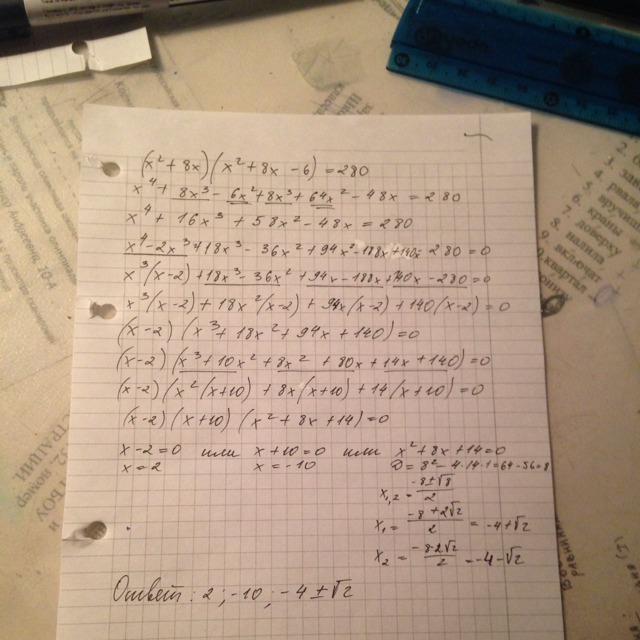 (x² + 8x)(x² + 8x - 6) = 280
x⁴ + 8x³ - 6x² + 8x³ + 64x² - 48x = 280
x⁴ + 16x³ + 58x² - 48x = 280
x⁴ - 2x³ + 18x³ - 36x² + 94x² - 188x + 140x - 280 = 0
x³(x-2) + 18x³ - 36x² + 94x - 188x + 140x - 280 = 0
x³(x-2) + 18x²(x-2) + 94x(x-2) + 140(x-2) = 0
(x-2)(x³ + 18x² + 94x + 140) = 0
(x-2)(x³ + 10x² + 8x² + 80x + 14x + 140) = 0
(x-2)(x²(x+10) + 8x(x+10) + 14(x+10) = 0
(x-2)(x+10)(x² + 8x + 14) = 0
x-2=0 или x+10=0 или x² + 8x + 14 = 0
x=2 x=-10 D = 8² - 4·14·1 = 64-56 = 8
x₁,₂ = -8±√8 / 2
x₁ = -8+2√2 / 2 = -4+√2
x₂ = -8-2√2 / 2 = -4-√2
Ответ: 2; -10; -4±√2
доверу